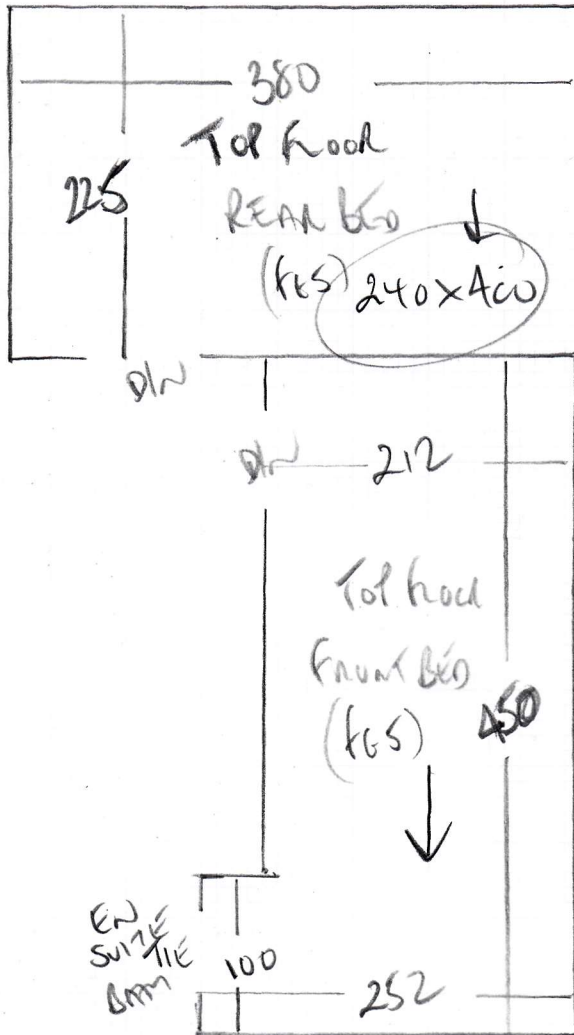 380
TOP FLOOR
225
REAR BED
(FES) 240 x 400
D/N
D/N
212
TOP FLOOR
FRONT BED
(FES)
450
EN
SUITE
TILE
100
252